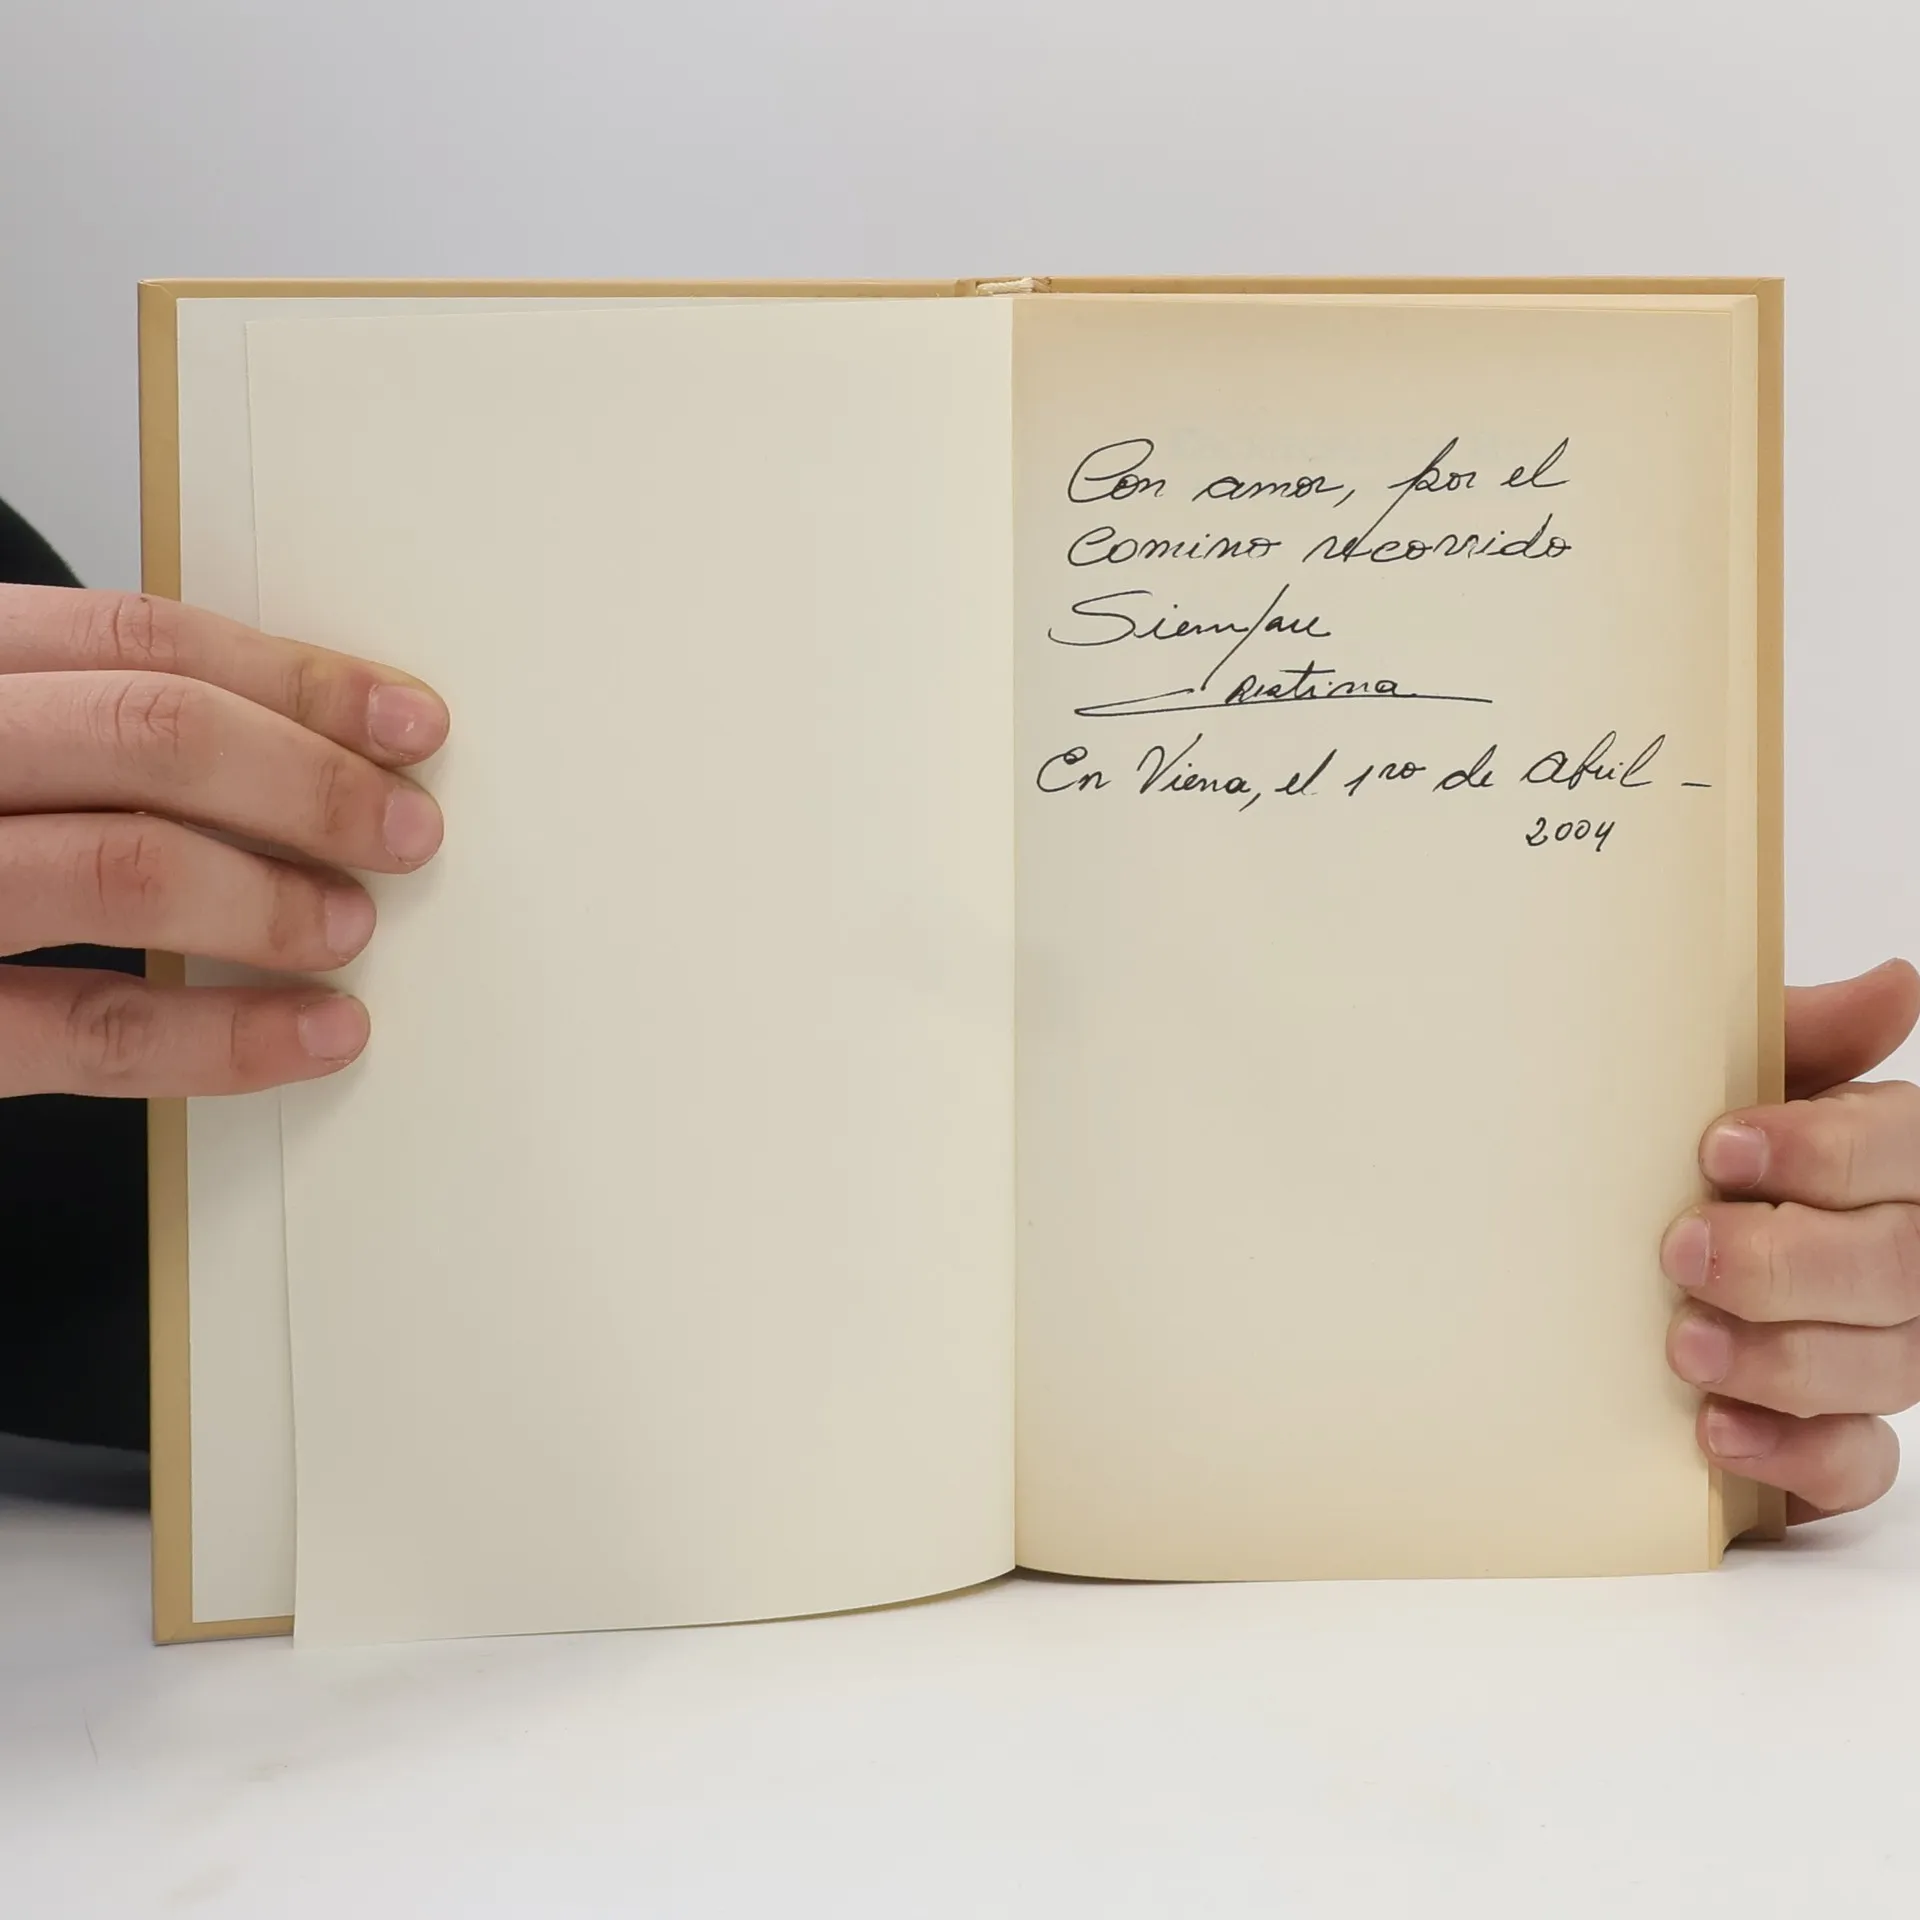 Con amor, por el
Camino recorrido
Siempre
Cristina
En Viena, el 1ro de Abril –
2004